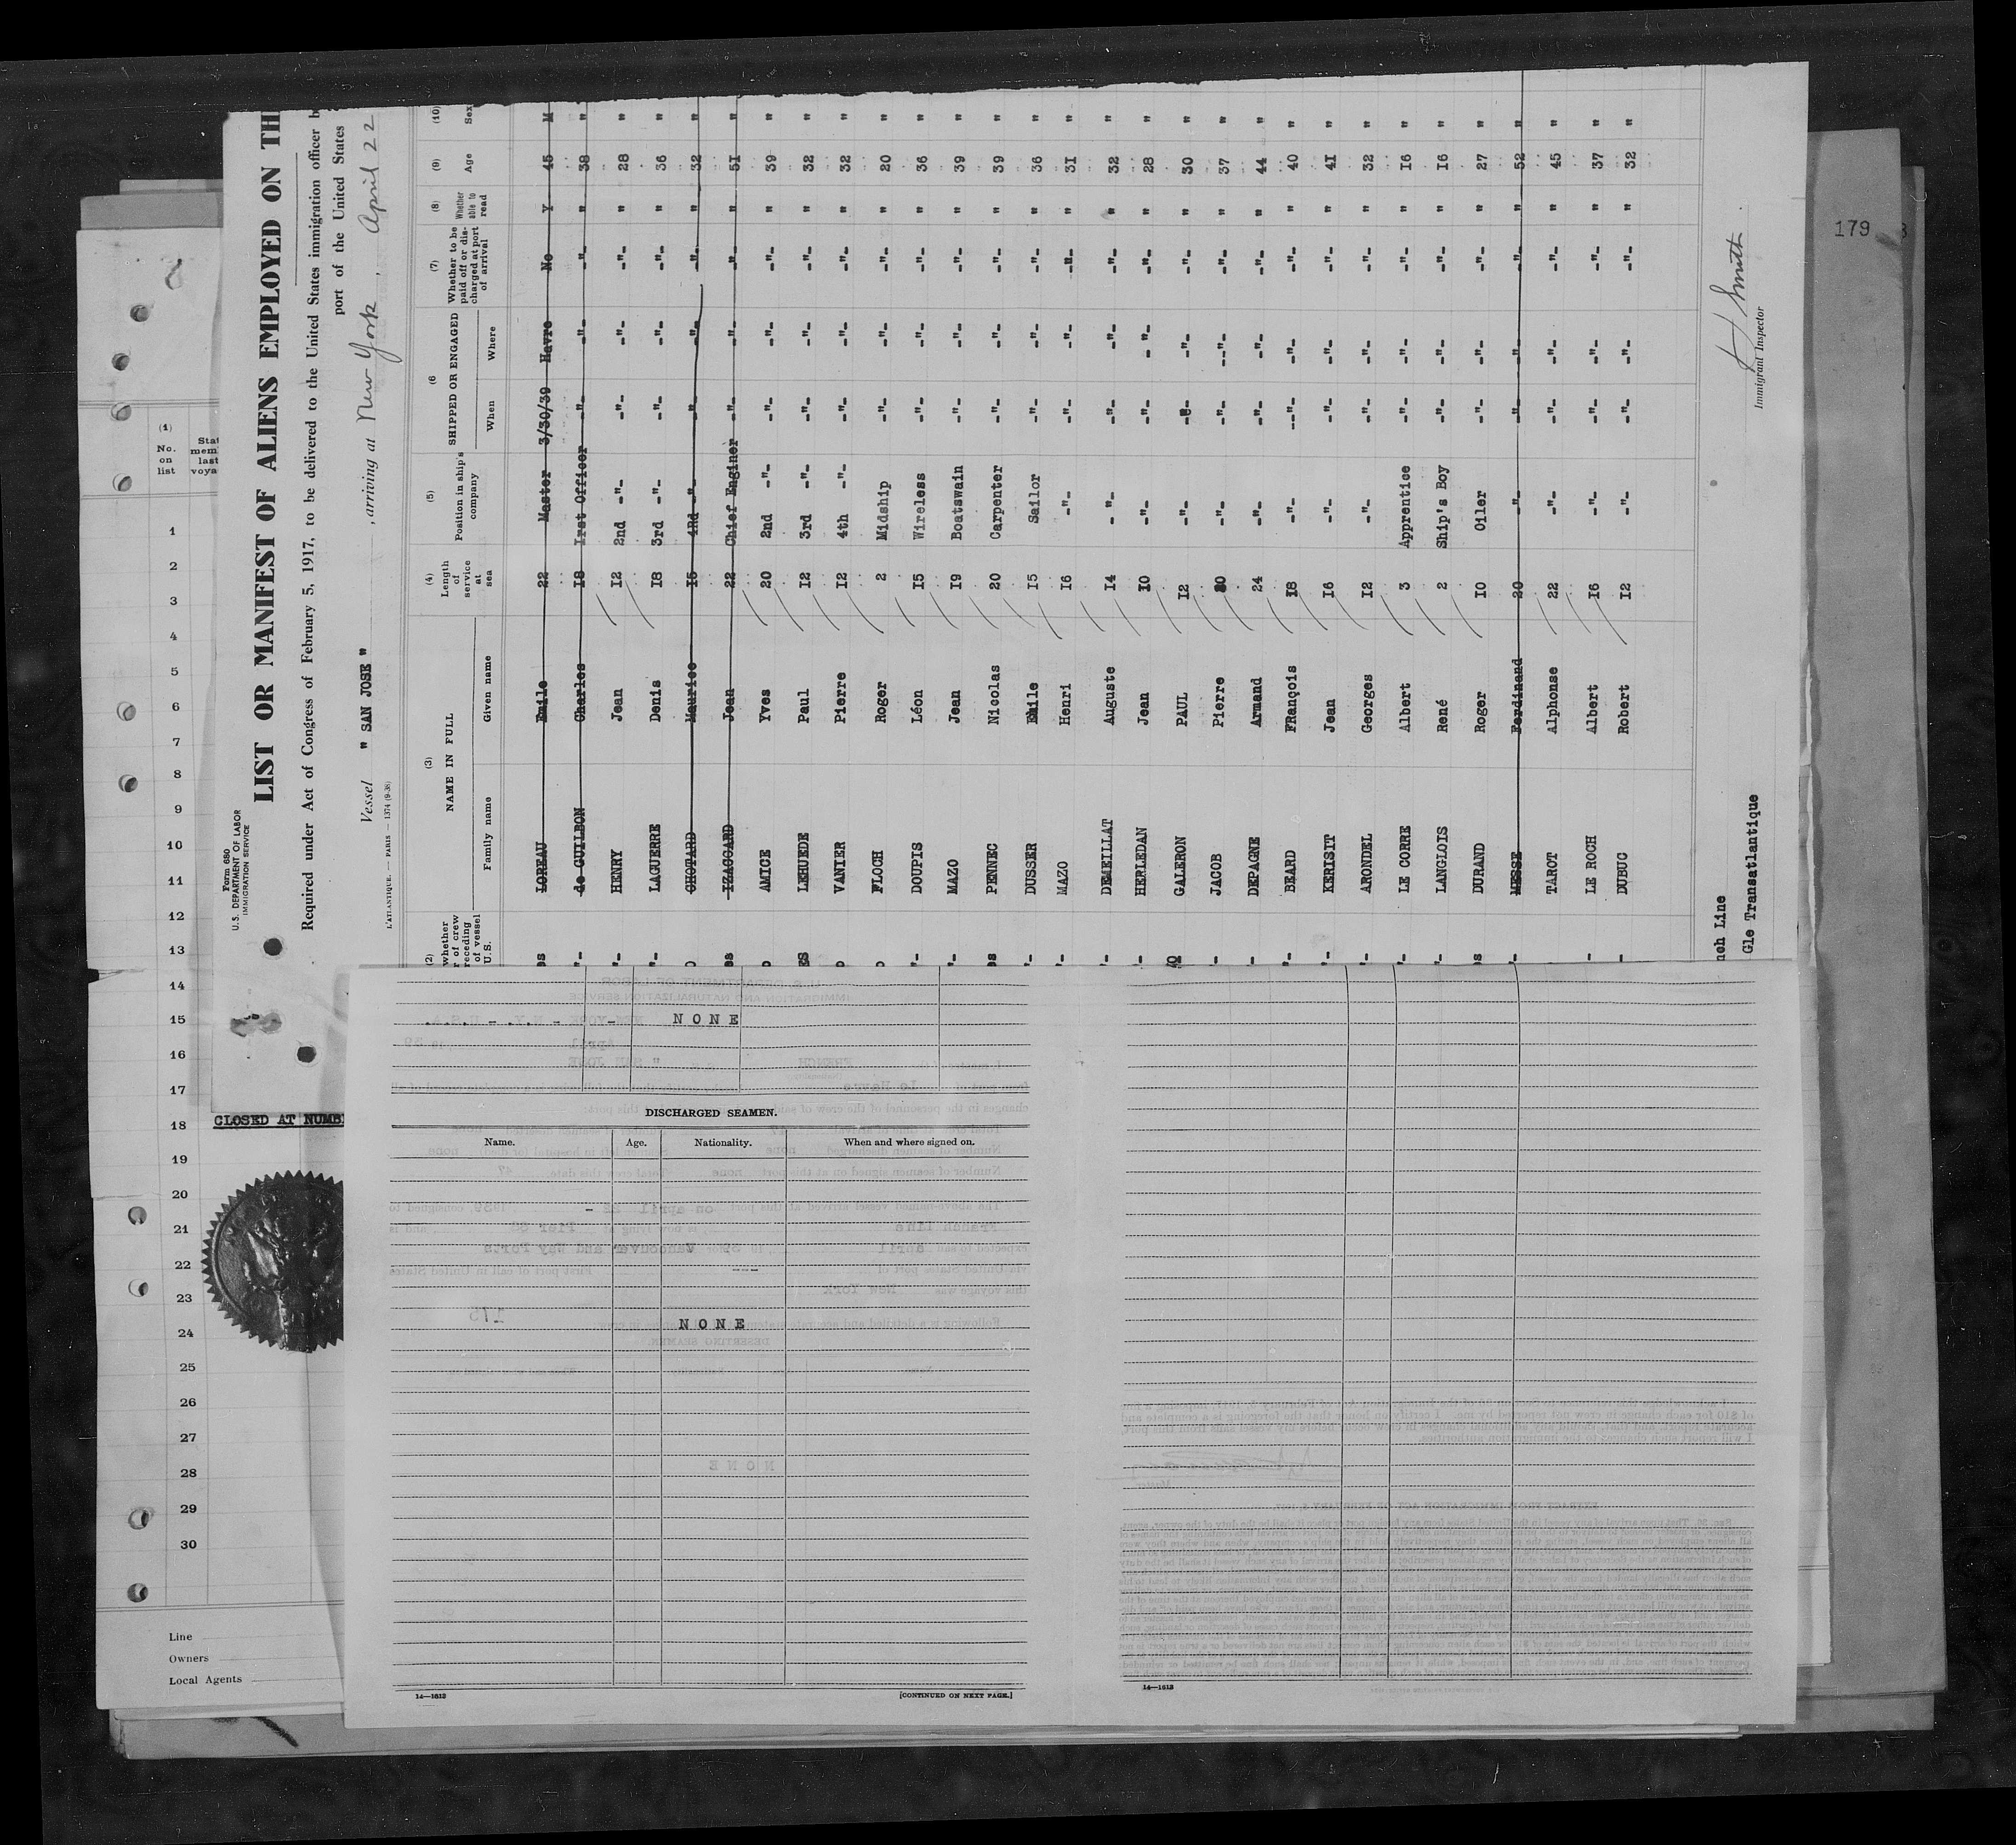 179
8
(1)
No.
on
list
1
2
3
4
5
6
7
8
9
10
11
12
13
14
15
16
17
18
19
20
21
22
23
24
25
26
27
28
29
30
Line
Owners
Local Agents
CLOSED AT NUMB
Form 680
U.S. DEPARTMENT OF LABOR
IMMIGRATION SERVICE
LIST OR MANIFEST OF ALIENS EMPLOYED ON TH
Required under Act of Congress of February 5, 1917, to be delivered to the United States immigration officer b
port of the United States
Vessel " SAN JOSE " , arriving at New York, April 22
L'ATLANTIQUE. — PARIS — 1374 (9-38)
(2) (3) NAME IN FULL Family name Given name (4) Length of service at sea (5) Position in ship's company (6 SHIPPED OR ENGAGED When Where (7) Whether to be paid off or discharged at port of arrival (8) Whether able to read (9) Age (10) Sex
es LOREAU Emile 22 Master 3/30/39 Havre No Y 45 M
"- de GUILBON Charles 18 Irst Officer -"- -"- -"- " 38 "
"- HENRY Jean 12 2nd -"- -"- -"- -"- " 28 "
"- LAGUERRE Denis 18 3rd -"- -"- -"- -"- " 36 "
o CHOTARD Maurice 15 4Rd -"- -"- -"- -"- " 32 "
es IZAGOARD Jean 22 Chief Enginer -"- -"- -"- " 51 "
o AMICE Yves 20 2nd -"- -"- -"- -"- " 39 "
ES LEHUEDE Paul 12 3rd -"- -"- -"- -"- " 32 "
o VANIER Pierre 12 4th -"- -"- -"- -"- " 32 "
o FLOCH Roger 2 Midship -"- -"- -"- " 20 "
"- DOUPIS Léon 15 Wireless -"- -"- -"- " 36 "
"- MAZO Jean 19 Boatswain -"- -"- -"- " 39 "
es PENNEC Nicolas 20 Carpenter -"- -"- -"- " 39 "
"- DUSSER Emile 15 Sailor -"- -"- -"- " 36 "
- MAZO Henri 16 -"- -"- -"- -"- " 31 "
"- DEMEILLAT Auguste 14 -"- -"- -"- -"- " 32 "
- HERLEDAN Jean 10 -"- -"- -"- -"- " 28 "
GALERON PAUL 12 -"- -"- -"- -"- " 30 "
- JACOB Pierre 20 -"- -"- --"- -"- " 37 "
- DEPAGNE Armand 24 -"- -"- -"- -"- " 44 "
"- BEARD FRançois 18 -"- --"- -"- -"- " 40 "
"- KERISIT Jean 16 -"- -"- -"- -"- " 41 "
- ARONDEL Georges 12 -"- -"- -"- -"- " 32 "
"- LE CORRE Albert 3 Apprentice -"- -"- -"- " 16 "
"- LANGLOIS René 2 Ship's Boy -"- -"- -"- " 16 "
es DURAND Roger 10 Oiler -"- -"- -"- " 27 "
"- MESSE Ferdinand 20 -"- -"- -"- -"- " 52 "
TAROT Alphonse 22 -"- -"- -"- -"- " 45 "
- LE ROCH Albert 16 -"- -"- -"- -"- " 37 "
- DUBUC Robert 12 -"- -"- -"- -"- " 32 "
nch Line
Gle Transatlantique
Smith
Immigrant Inspector
NONE
DISCHARGED SEAMEN.
Name. Age. Nationality. When and where signed on.
NONE
14—1613 [CONTINUED ON NEXT PAGE.]
14—1613